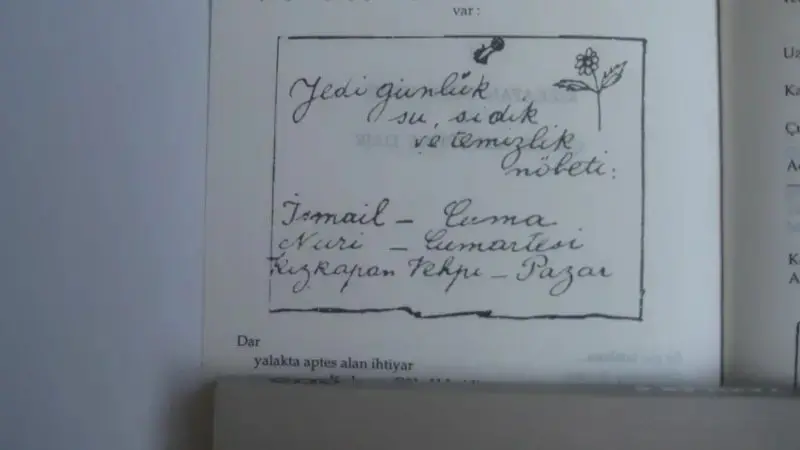 var :
Yedi günlük
su, sidik
ve temizlik
nöbeti:
İsmail – Cuma
Nuri – Cumartesi
Kızkapan Vehpi – Pazar
Dar
yalakta aptes alan ihtiyar
Uz
Ka
K
A